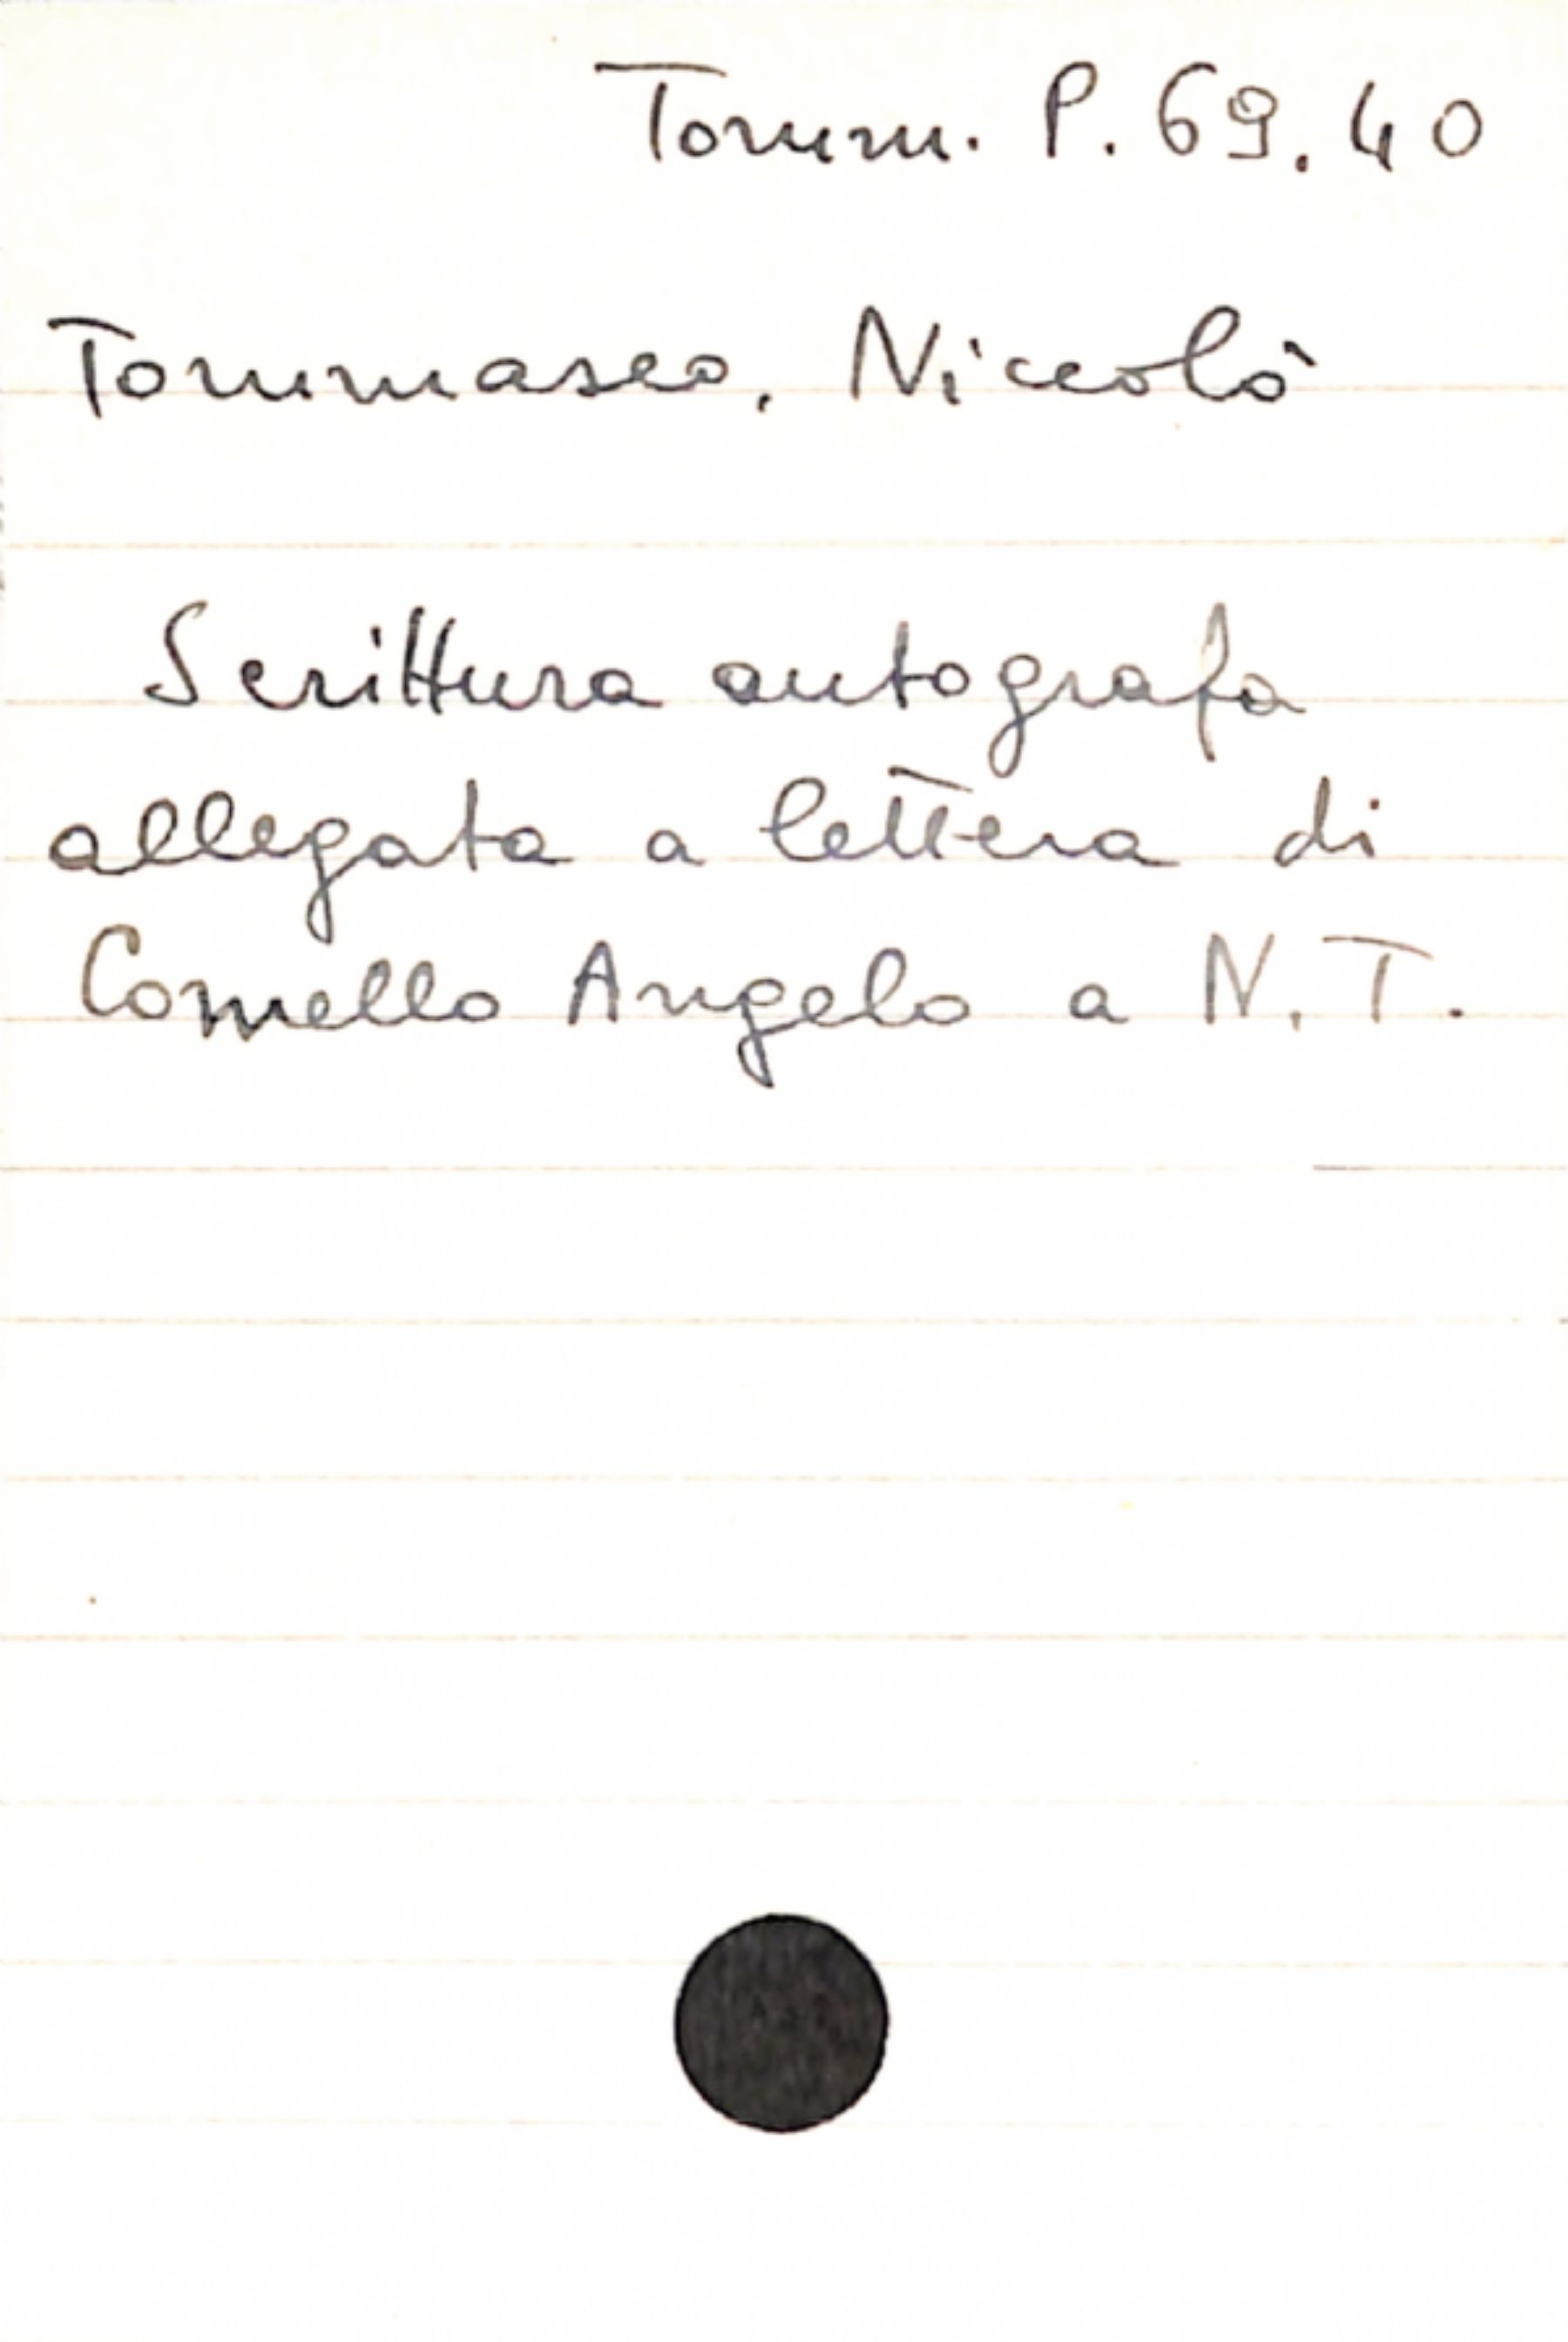 Tomm. P. 69. 40
Tommaseo, Niccolò
Scrittura autografa
allegata a lettera di
Comello Angelo a N. T.